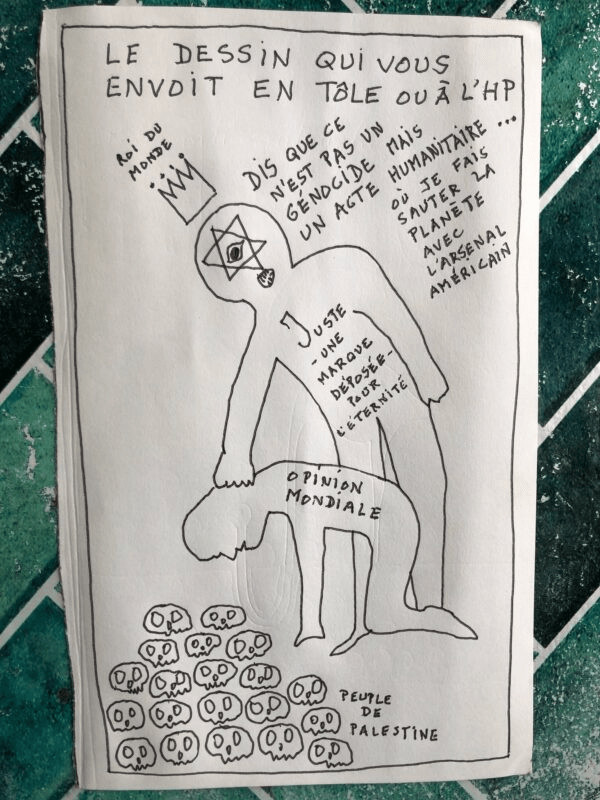 LE DESSIN QUI VOUS
ENVOIT EN TÔLE OU À L'HP
ROI DU
MONDE
DIS QUE CE
N'EST PAS UN
GÉNOCIDE MAIS
UN ACTE HUMANITAIRE...
OÙ JE FAIS
SAUTER LA
PLANÈTE
AVEC
L'ARSENAL
AMÉRICAIN
JUSTE
- UNE
MARQUE
DÉPOSÉE -
POUR
L'ÉTERNITÉ
OPINION
MONDIALE
PEUPLE
DE
PALESTINE